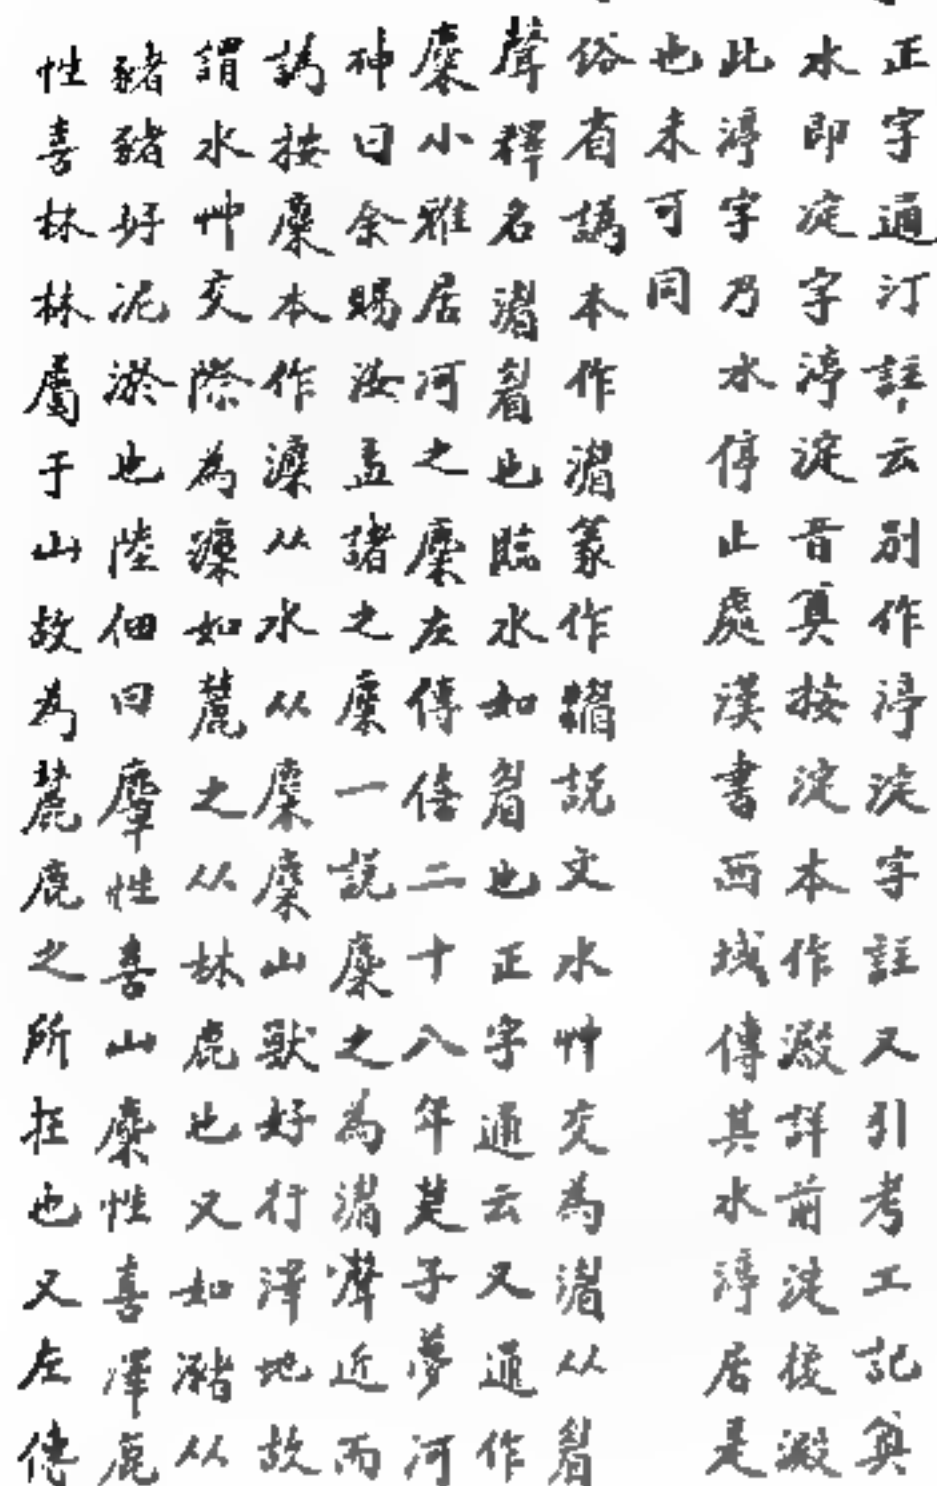 正字通汀註云別作渟淀字註又引考工記奠
水即淀字渟淀音奠按淀本作澱詳前淀後澱
此渟字乃水停止處漢書西域傳其水渟居是
也未可同
俗省譌本作湄篆作䊳說文水艸交為湄从睂
聲釋名湄睂也臨水如睂也正字通云又通作
麋小雅居河之麋左傳僖二十八年楚子夢河
神曰余賜汝孟諸之麋一說麋之為湄聲近而
譌按麋本作濂从水从麇麋山獸好行澤地故
謂水艸交際為濂如麓之从林鹿也又如瀦从
豬豬好泥淤也陸佃曰麞性喜山麋性喜澤鹿
性喜林林屬于山故為麓鹿之所在也又左傳